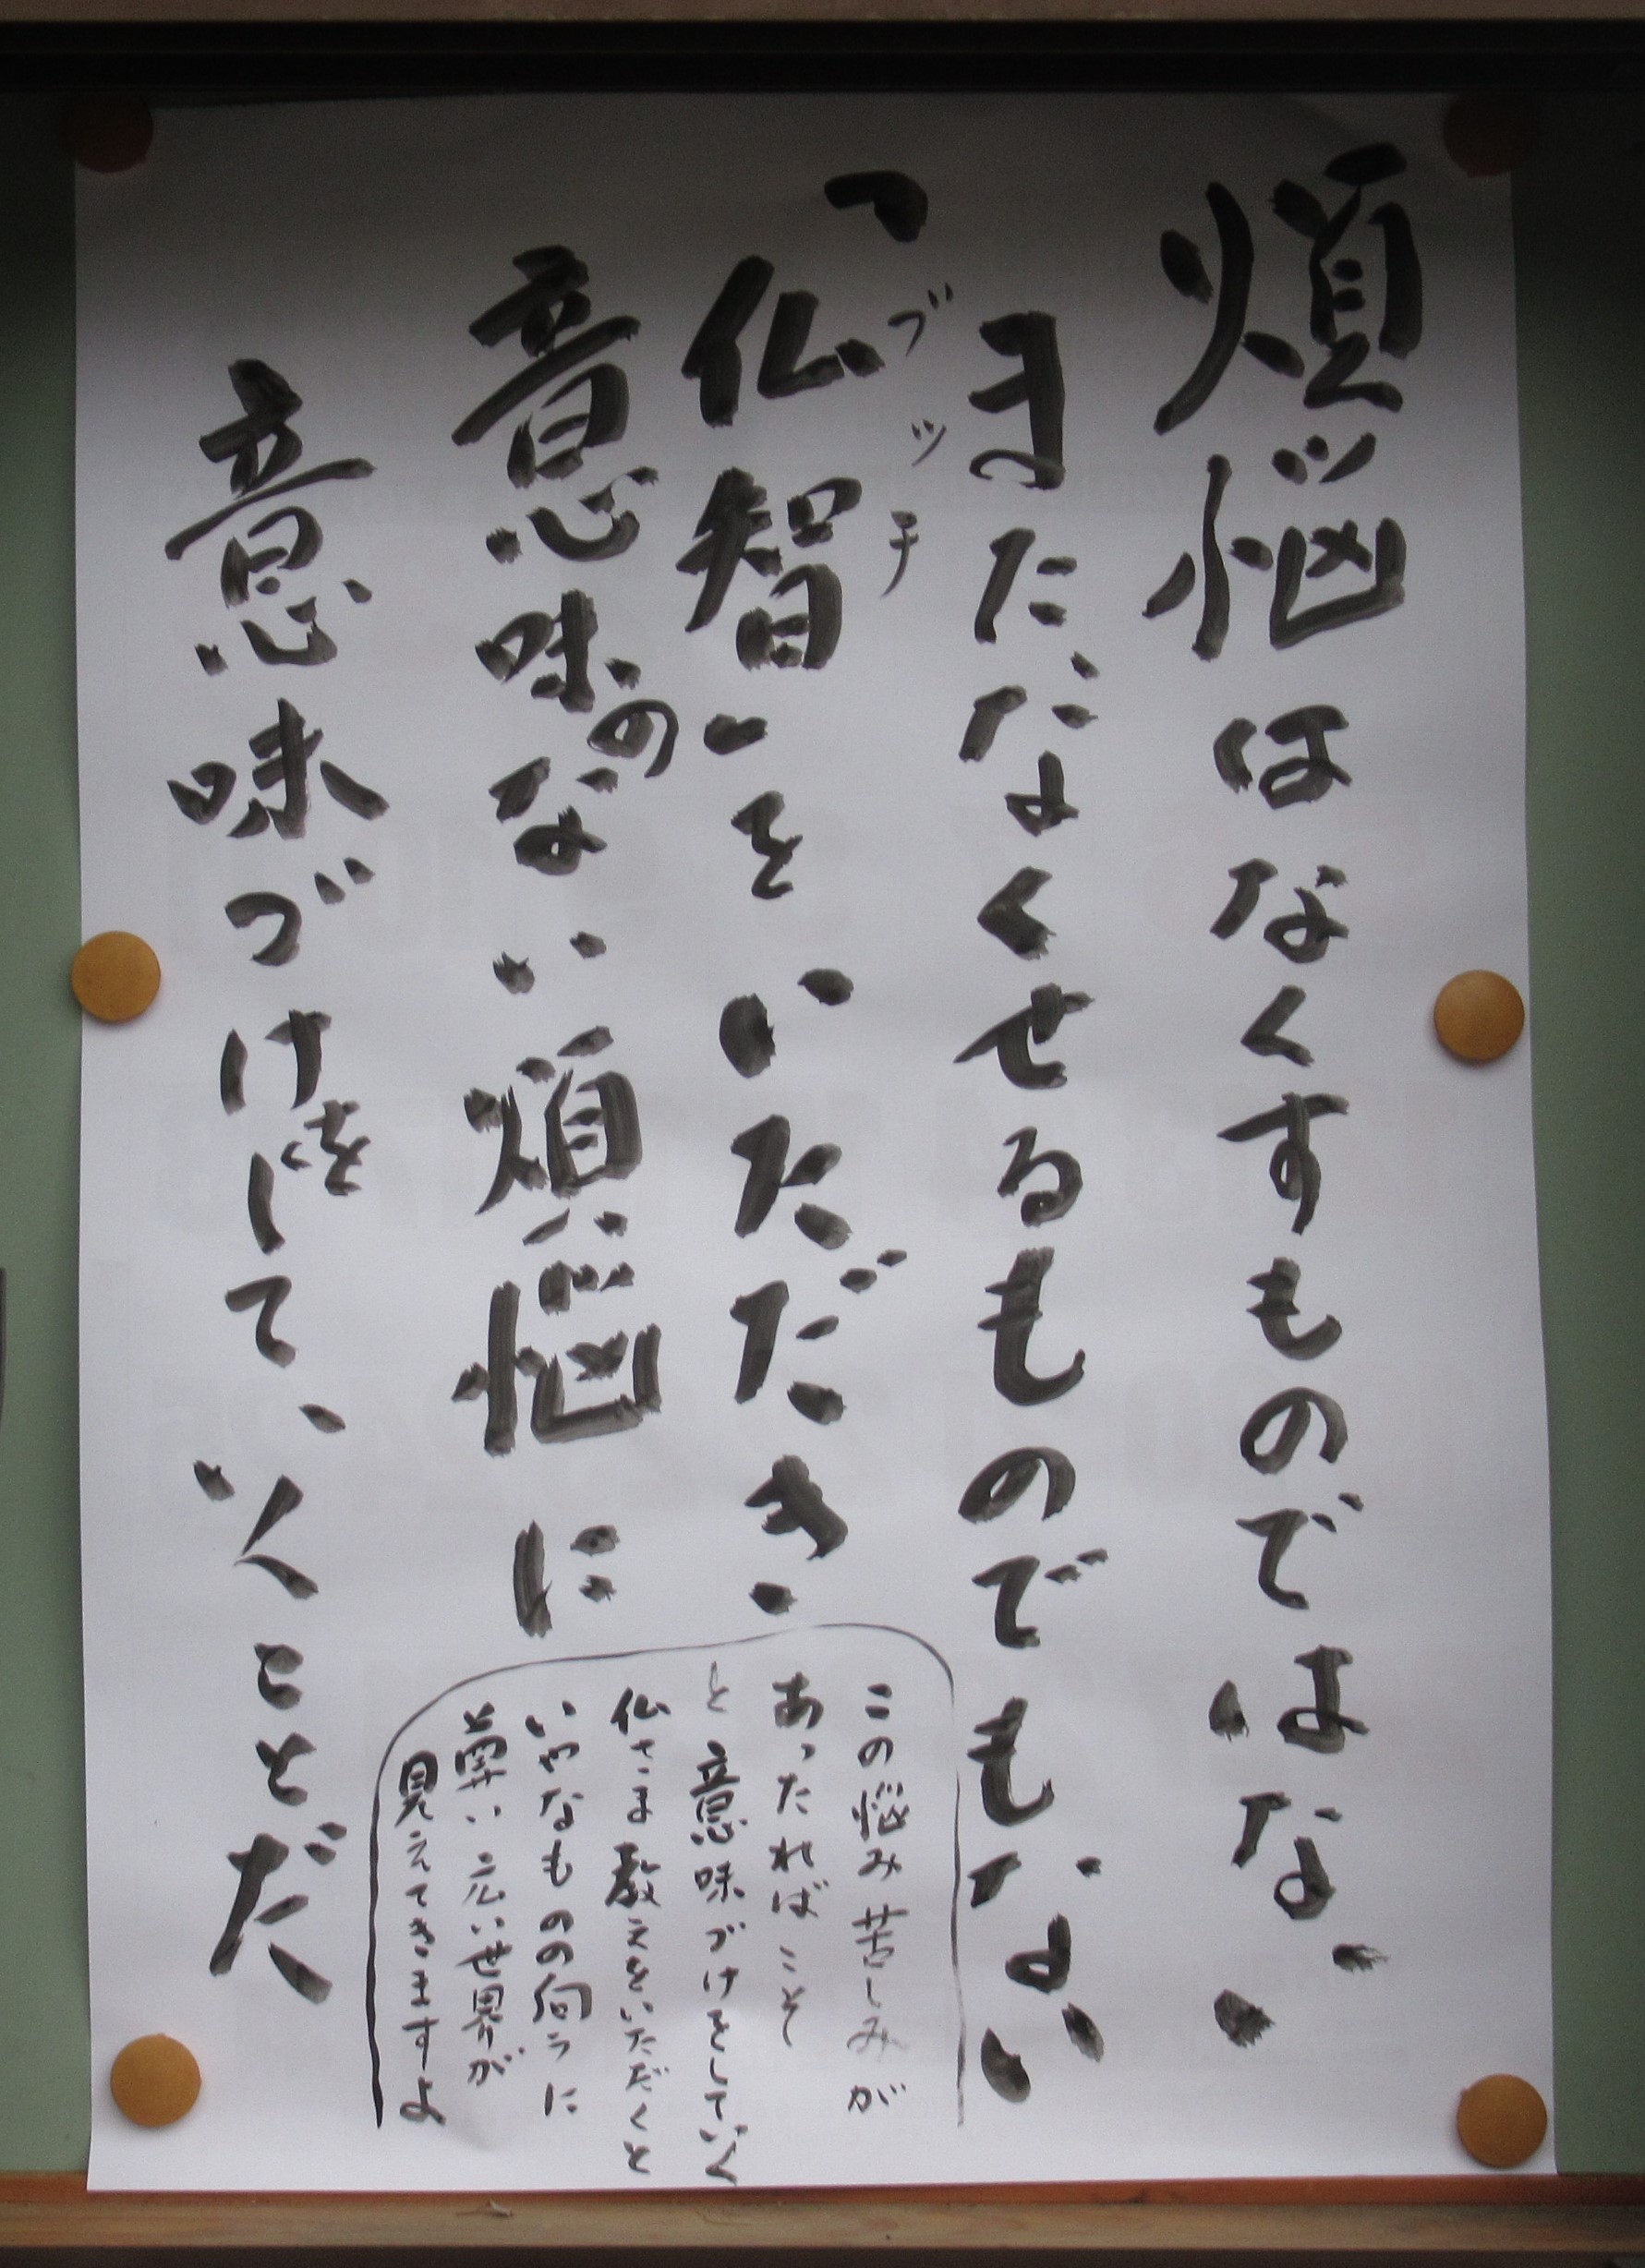 煩悩はなくすものではない
またなくせるものでもない
「仏智」をいただき、
ブッチ
意味のない煩悩に
意味づけをして、いくことだ
この悩み苦しみが
あったればこそ
と意味づけをしていく
仏さま教えをいただくと
いやなものの向うに
尊い広い世界が
見えてきますよ